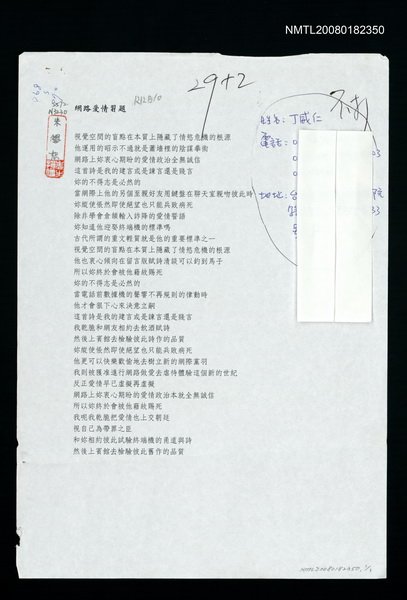 NMTL20080182350
29+2
R12B10
網路愛情習題
姓名：丁威仁
電話：0
地址：台
視覺空間的盲點在本質上隱藏了情慾危機的根源
他運用的昭示不過就是蕭牆裡的陰謀拳術
網路上妳衷心期盼的愛情政治全無誠信
這首詩是我的建言或是諫言還是賤言
妳的不得志是必然的
當網際上他的另個至親好友用鍵盤在聊天室親吻彼此時
妳縱使悵然即使絕望也只能兵敗病死
除非學會倉頡輸入訃降的愛情誓語
妳知道他迎娶終端機的標準嗎
古代所謂的重文輕質就是他的重要標準之一
視覺空間的盲點在本質上隱藏了情慾危機的根源
他也衷心傾向在留言版賦詩清談可以釣到馬子
所以妳終於會被他藉故賜死
妳的不得志是必然的
當電話前數據機的聲響不再規則的律動時
他才會狠下心來決意立嗣
這首詩是我的建言或是諫言還是賤言
我乾脆和網友相約去飲酒賦詩
然後上賓館去檢驗彼此詩作的品質
妳縱使悵然即使絕望也只能兵敗病死
他更可以快樂歡愉地去樹立新的網際黨羽
我則被獲准進行網路做愛去虐待體驗這個新的世紀
反正愛情早已虛擬再虛擬
網路上妳衷心期盼的愛情政治本就全無誠信
所以妳終於會被他藉故賜死
我呢我乾脆把愛情也上交朝廷
視自己為帶罪之臣
和妳相約彼此試驗終端機的甬道與詩
然後上賓館去檢驗彼此舊作的品質
NMTL20080182350, 1/1